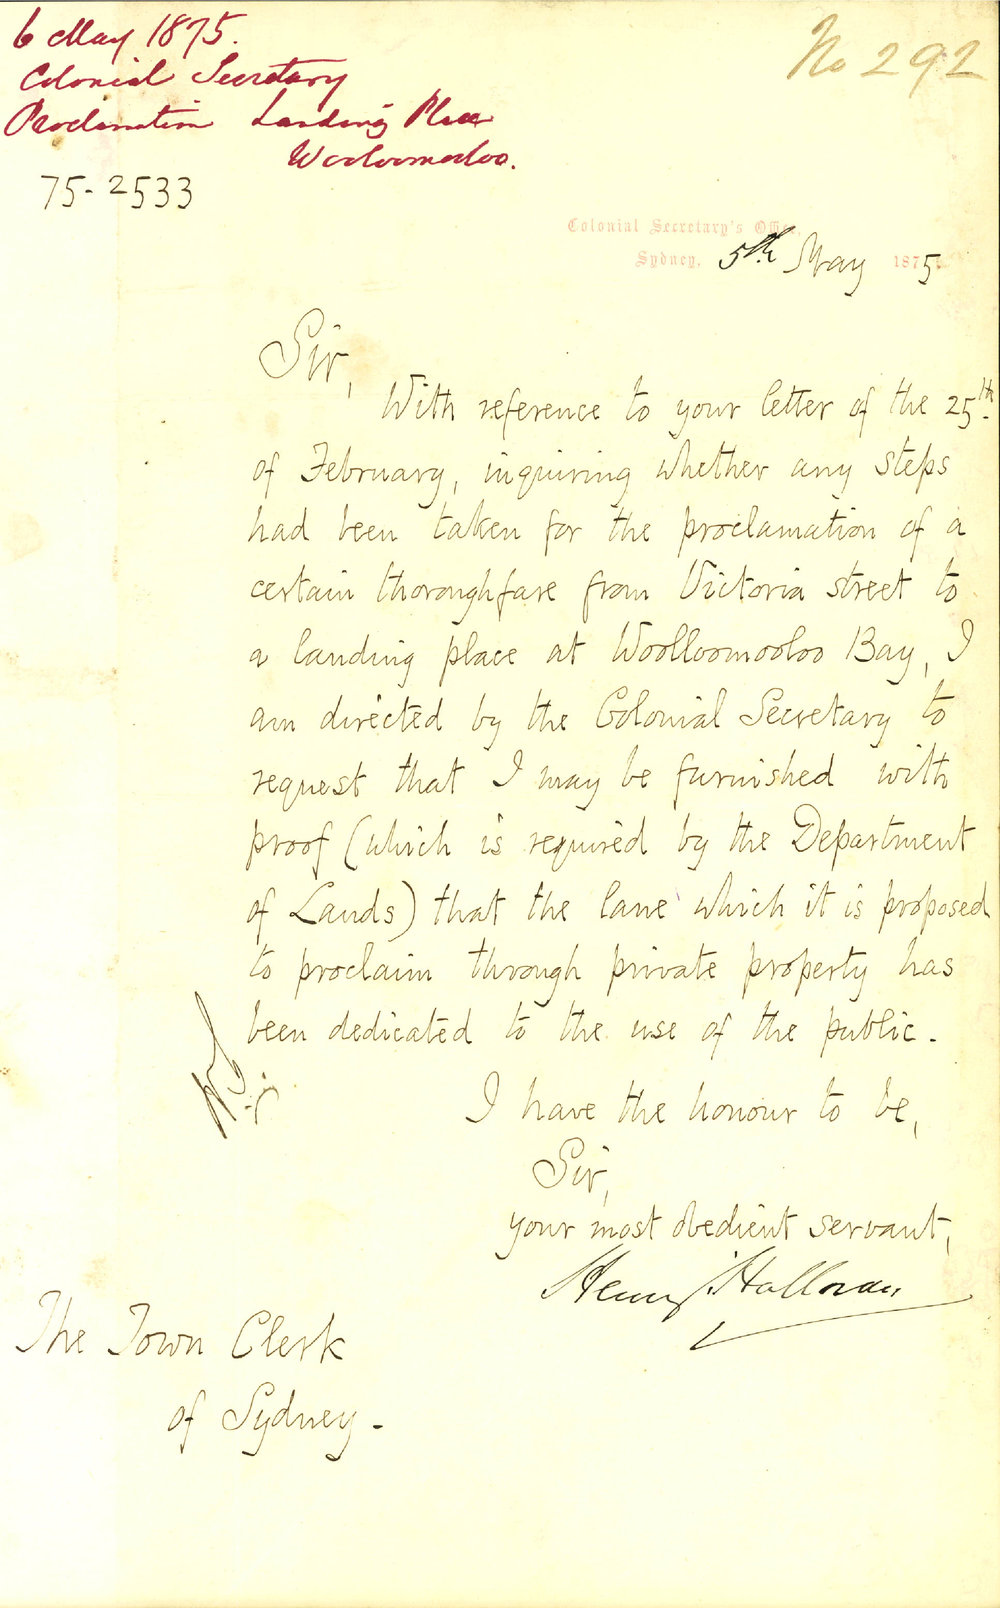 6 May 1875.
Colonial Secretary
Proclamation Landing Place
Wooloomooloo.
75-2533
No 292
Colonial Secretary's Office,
Sydney, 5th May 1875
Sir,
With reference to your letter of the 25th.
of February, inquiring whether any steps
had been taken for the proclamation of a
certain thoroughfare from Victoria street to
a landing place at Woolloomooloo Bay, I
am directed by the Colonial Secretary to
request that I may be furnished with
proof (which is required by the Department
of Lands) that the lane which it is proposed
to proclaim through private property has
been dedicated to the use of the public.
I have the honour to be,
Sir,
your most obedient servant,
Henry Halloran
The Town Clerk
of Sydney.